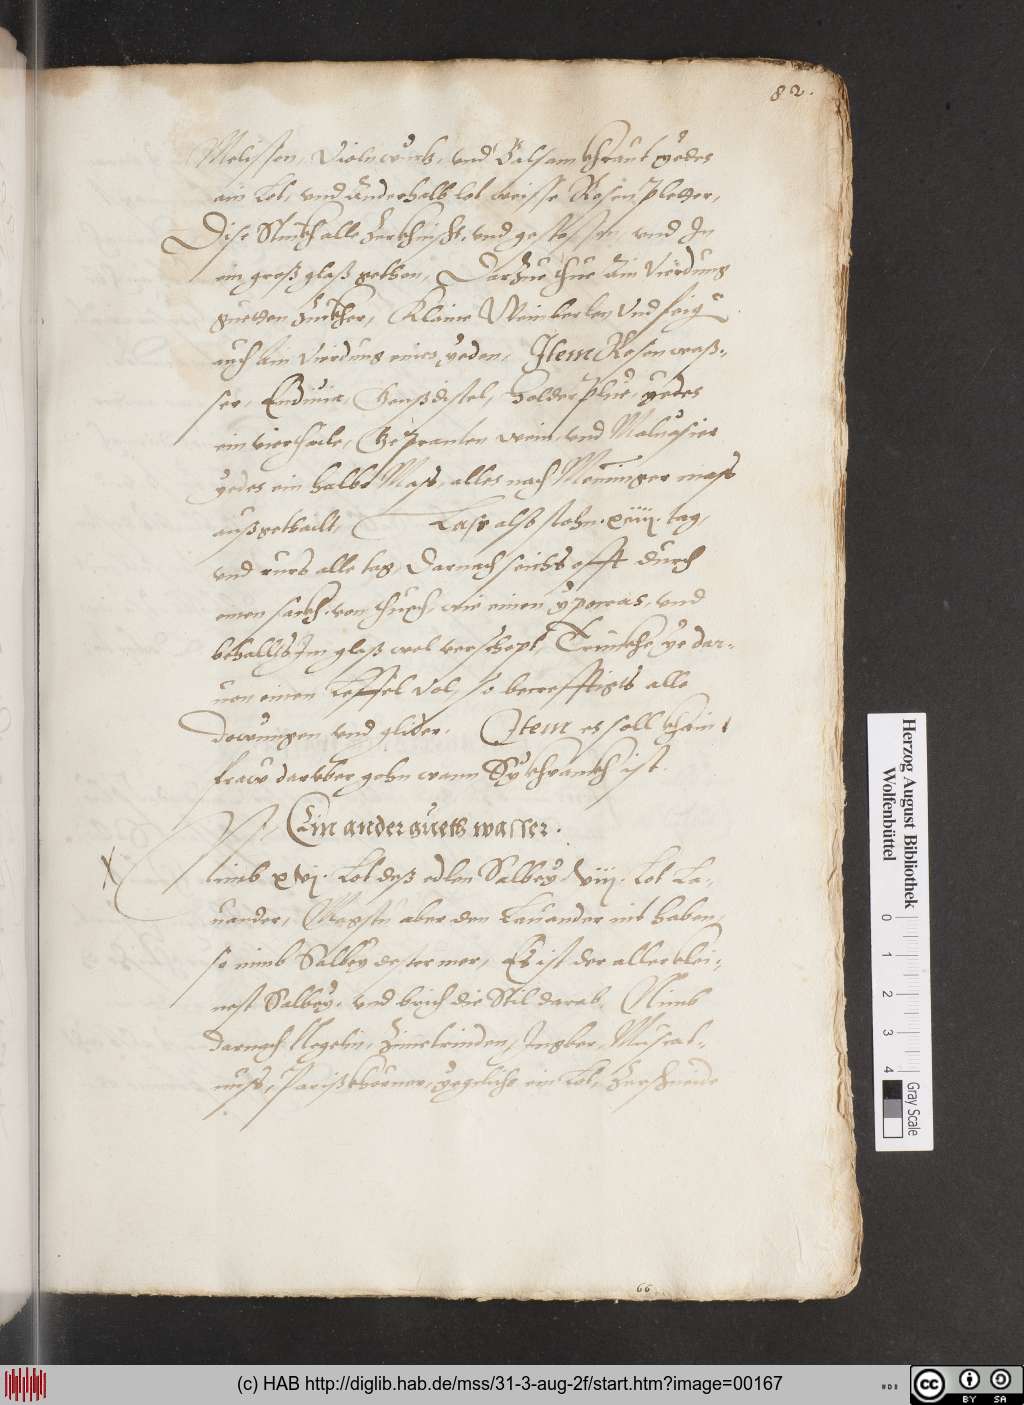 82.
Melissen, Violnwurtz, und Balsam khraut yedes
ain Lot, und Anderhalb lot weisse Rosen Pletter,
Dise Stuckh alle Zerkhnischt, und gestossen, und In
ein groß glaß gethon, Darzue thue Ain Vierdung
guetten Zuckher, Klaine Weinberlen Und feign
auch Ain Vierdung eines yeden, Item Rosen waß-
ser, Endivia, Genßdistel, Holder Plüe, yedes
ein vierthaile, Geprannten wein, und Malvasier
yedes ein halbe Mass, alles nach Menninger mass
außgethailt, Lass also stehn .xiiij. tag,
und ruers alle tag, Darnach seichs offt durch
einen sackh von thuech, wie einen ypocras, und
behalts Im glaß wol verschopt, Trinckhe ye dar-
von einen Leffel Vol, so becrefftigts alle
dewungen und glider. Item es soll khain
fraw darüber gehn wann Sy khranckh ist.
Ein ander guets wasser.
Nimb xvj. Lot deß edlen Salbey, viij. Lot La-
vander, Magstu aber den Lavander nit haben,
so nimb Salbey dester mer, Es ist der aller klei-
nest Salbey, und brich die Stil darab, Nimb
darnach Negelin, Zimetrinden, Ingber, Muscat-
nuss, Parißkhörner, yegclichs ein Lot, Zerschneide
66
Herzog August Bibliothek
Wolfenbüttel
0 1 2 3 4
Gray Scale
(c) HAB http://diglib.hab.de/mss/31-3-aug-2f/start.htm?image=00167
WDB
cc BY SA